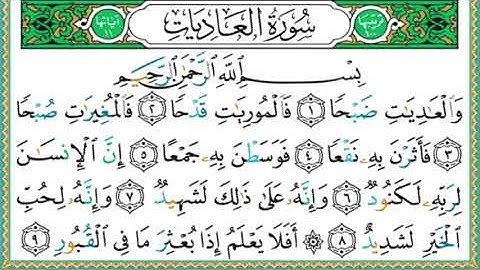 ترتيبها ١٠٠ سُورَةُ العَادِيَاتِ آياتها ١١
بِسْمِ اللَّهِ الرَّحْمَٰنِ الرَّحِيمِ
وَالْعَادِيَاتِ ضَبْحًا ١ فَالْمُورِيَاتِ قَدْحًا ٢ فَالْمُغِيرَاتِ صُبْحًا
٣ فَأَثَرْنَ بِهِ نَقْعًا ٤ فَوَسَطْنَ بِهِ جَمْعًا ٥ إِنَّ الْإِنْسَانَ
لِرَبِّهِ لَكَنُودٌ ٦ وَإِنَّهُ عَلَىٰ ذَٰلِكَ لَشَهِيدٌ ٧ وَإِنَّهُ لِحُبِّ
الْخَيْرِ لَشَدِيدٌ ٨ ۞ أَفَلَا يَعْلَمُ إِذَا بُعْثِرَ مَا فِي الْقُبُورِ ٩